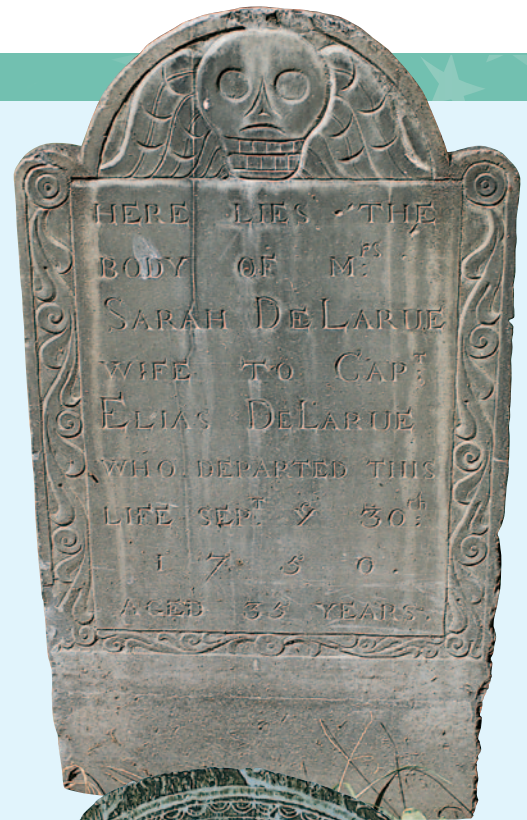 HERE LIES THE
BODY OF M:RS
SARAH DELARUE
WIFE TO CAP:T
ELIAS DELARUE
WHO DEPARTED THIS
LIFE SEP:T Y 30:th
1 7 5 0.
AGED 35 YEARS.